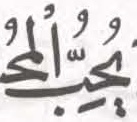 يُحِبُّ الْمُحْ